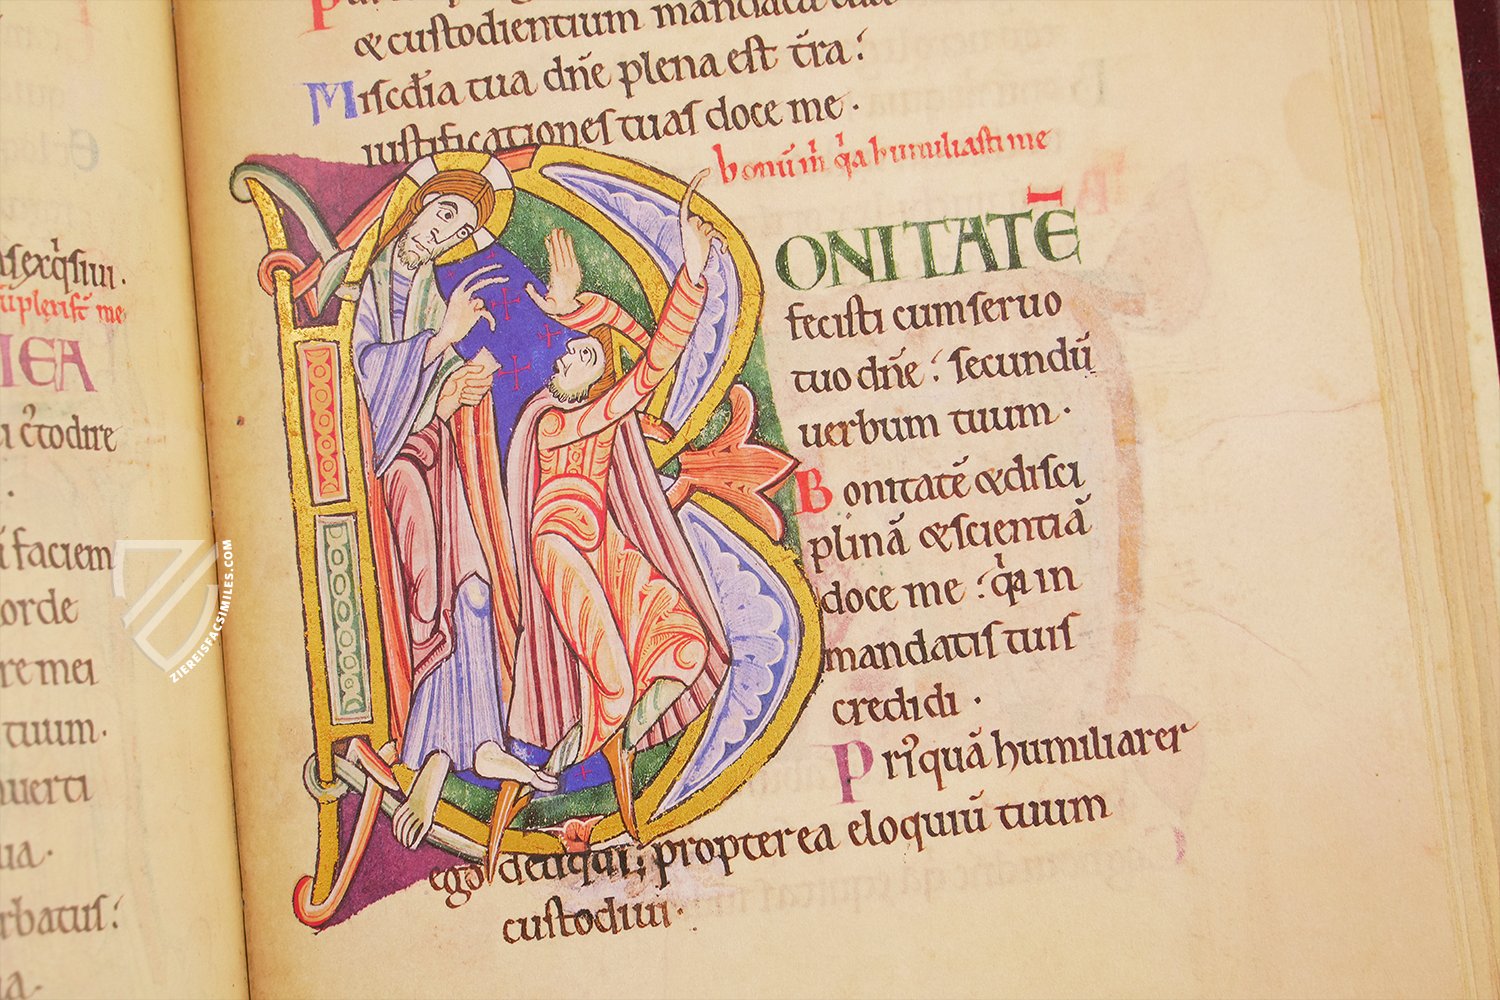 &custodientium mandata
Miscdia tua dn̄e plena est t̄ra:
iustificationes tuas doce me.
bonū m̄ qa humiliasti me
BONITATĒ
fecisti cum seruo
tuo dn̄e: secundū
uerbum tuum.
Bonitatē & disci
plinā & scientiā
doce me: qa in
mandatis tuis
credidi.
Priꝰquā humiliarer
ego deliqui; propterea eloquiū tuum
custodiui.
exqsiui.
me
EA
c̄todire
faciem
orde
re mei
tuum.
uerti
ua.
rbatus:
ZIEREISFACSIMILES.COM